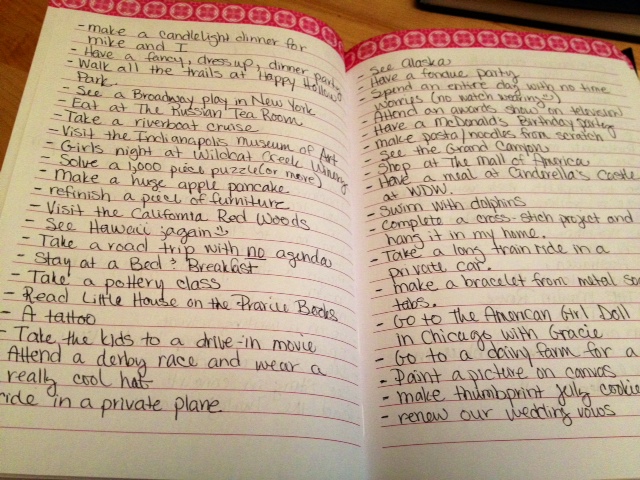 - make a candlelight dinner for
mike and I
- Have a fancy, dress up, dinner party
- Walk all the trails at Happy Hollow
Park.
- See a Broadway play in New York
- Eat at The Russian Tea Room
- Take a riverboat cruise
- Visit the Indianapolis museum of Art
- Girls night at Wildcat Creek Winery
- Solve a 1,000 piece puzzle (or more)
- Make a huge apple pancake
- refinish a piece of furniture
- Visit the California Red Woods
- See Hawaii again
- Take a road trip with no agenda
- Stay at a Bed & Breakfast
- Take a pottery class
- Read Little House on the Prarie Books
- A tattoo
- Take the kids to a drive-in movie
Attend a derby race and wear a
really cool hat
ride in a private plane
- See Alaska
- Have a fondue party
- Spend an entire day with no time
worrys (no watch wearing)
- Attend an awards show on television
- Have a McDonald's Birthday party
- make pasta/noodles from scratch
- See the Grand Canyon
- Shop at The Mall of America
- Have a meal at Cinderella's Castle
at WDW.
- Swim with dolphins
- Complete a cross-stich project and
hang it in my home.
- Take a long train ride in a
private car.
- make a bracelet from metal
tabs.
- Go to the American Girl Doll
in Chicago with Gracie
- Go to a dairy farm for a
- Paint a picture on canvas
- make thumbprint jelly cookie
- renew our wedding vows